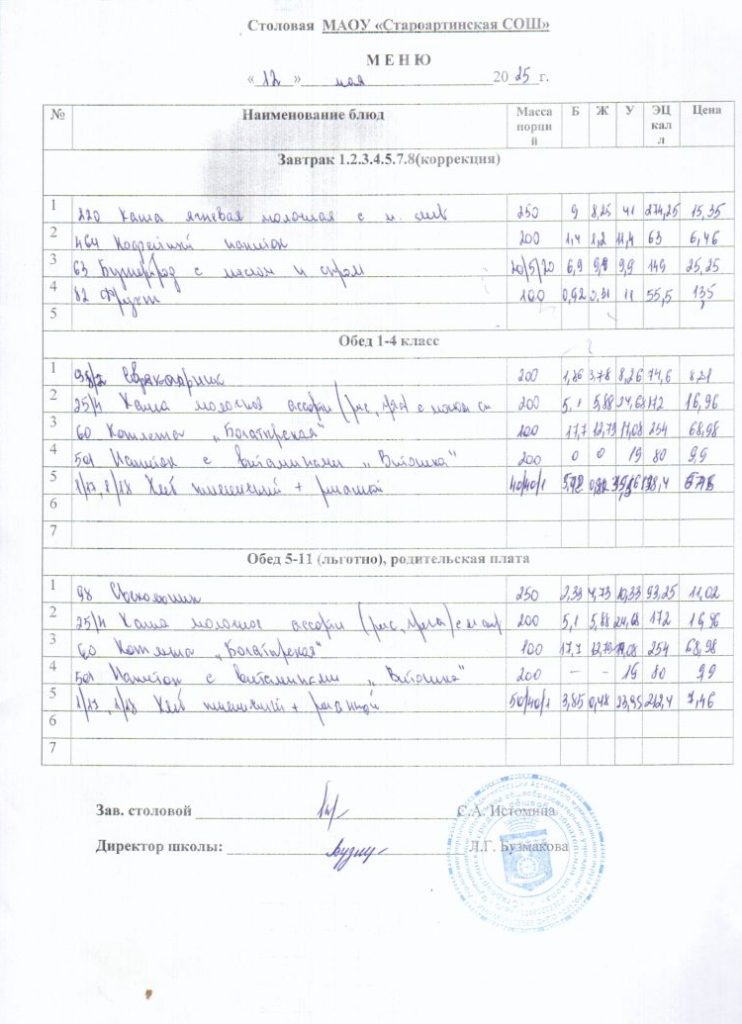 Столовая МАОУ «Староартинская СОШ»
М Е Н Ю
« 12 » мая 20 25 г.
№ Наименование блюд Масса порций Б Ж У ЭЦ калл Цена
Завтрак 1.2.3.4.5.7.8(коррекция)
1 220 Каша ячневая молочная с м. слив 250 9 8,25 41 274,25 15,35
2 464 Кофейный напиток 200 1,4 1,2 11,4 63 6,46
3 63 Бутерброд с маслом и сыром 20/5/20 6,9 9,9 149 25,25
4 82 Фрукт 100 0,92 0,31 11 55,5 135
5
Обед 1-4 класс
1 98/2 Свекольник 200 1,86 3,78 8,26 74,6 8,21
2 25/4 Каша молочная ассорти (рис, с маслом сл 200 5,1 5,88 24,68 172 16,96
3 60 Котлета „Богатырская" 100 17,7 12,79 17,08 254 68,98
4 501 Напиток с витаминами „Витошка" 200 0 0 19 80 9,9
5 1/17, 1/18 Хлеб пшеничный + ржаной 40/40/1
6
7
Обед 5-11 (льготно), родительская плата
1 98 Свекольник 250 2,33 4,73 10,33 93,25 11,02
2 25/4 Каша молочное ассорти (рис, греча) с м 200 5,1 5,88 24,68 172 16,96
3 60 Котлета „Богатырская" 100 17,7 12,79 17,08 254 68,98
4 501 Напиток с витаминами „Витошка" 200 – – 19 80 9,9
5 1/17, 1/18 Хлеб пшеничный + ржаной 50/40/1 3,85 0,48 23,95 212,4 7,46
6
7
Зав. столовой С.А. Истомина
Директор школы: Л.Г. Бузмакова